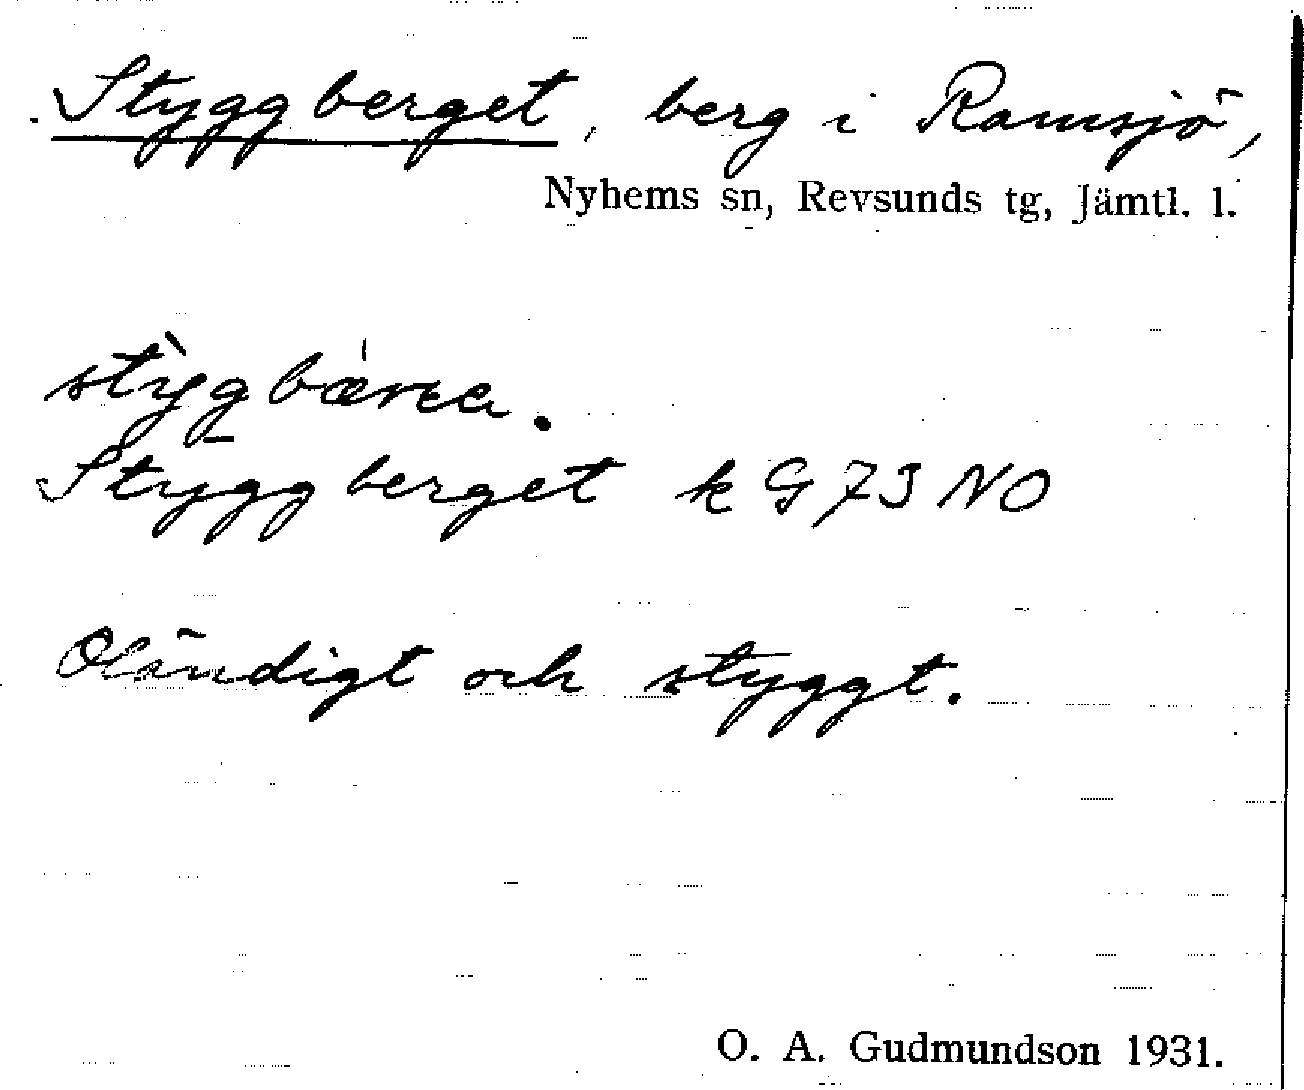 Styggberget, berg i Ramsjö,
Nyhems sn, Revsunds tg, Jämtl. l.
Styggberget k G 73 NO
Oländigt och styggt.
O. A. Gudmundson 1931.